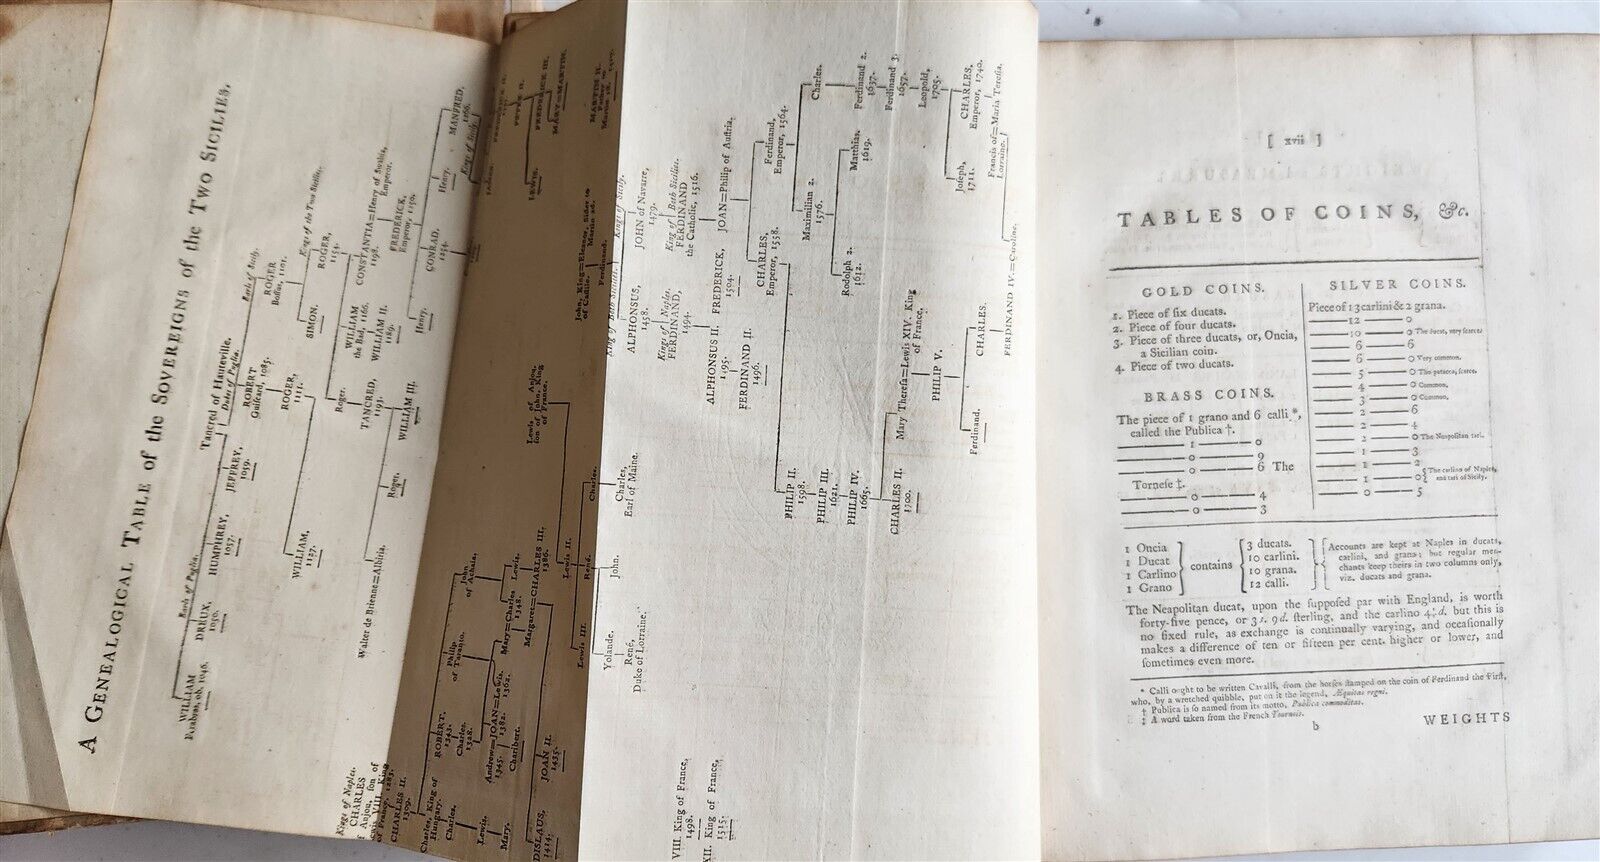 A GENEALOGICAL TABLE of the SOVEREIGNS of the TWO SICILIES,
Tancred of Hauteville.
Earls of Puglia.
Dukes of Puglia.
Earls of Sicily.
WILLIAM
Ferabras, ob. 1046.
DREUX,
1050.
HUMPHREY,
1057.
JEFFREY,
1059.
ROBERT
Guiscard, 1085.
ROGER
Bossus, 1101.
WILLIAM,
1127.
ROGER,
1111.
SIMON.
Kings of the Two Sicilies.
ROGER,
1154.
Roger.
WILLIAM
the Bad, 1166.
CONSTANTIA=Henry of Suabia,
1198. Emperor.
TANCRED,
1193.
WILLIAM II.
1189.
FREDERICK,
Emperor, 1250.
Walter de Brienne=Albiria.
Roger.
WILLIAM III.
Henry.
CONRAD,
1254.
Henry.
MANFRED,
1266.
Kings of Sicily.
Kings of Naples.
CHARLES
Anjou, son of
CHARLES II.
1309.
Charles, King of
Hungary.
ROBERT,
1343.
Philip
of Taranto.
John
of Achaia.
Lewis.
FREDERICK III.
MARY=MARTIN.
MARTIN II.
Charles.
Charles,
1328.
Lewis.
Mary.
Andrew=JOAN=Lewis.
1345. 1382. 1362.
Charibert.
Mary=Charles
1348.
Lewis.
Margaret=CHARLES III.
1386.
DISLAUS,
1414.
JOAN II.
1435.
Lewis of Anjou,
son of John, King
of France.
Lewis II.
Lewis III.
René.
Charles.
John, King=Eleanor, Sister to
of Castile. Martin 2d.
Ferdinand.
Yolande.
John.
Charles,
Earl of Maine.
King of Both Sicilies.
ALPHONSUS,
1458.
Kings of Sicily.
JOHN of Navarre,
1479.
René,
Duke of Lorraine.
Kings of Naples.
FERDINAND,
1494.
King of Both Sicilies.
FERDINAND
the Catholic, 1516.
VIII. King of France,
1498.
XII. King of France,
1515.
ALPHONSUS II.
1495.
FREDERICK,
1504.
JOAN=Philip of Austria.
FERDINAND II.
1496.
CHARLES,
Emperor, 1558.
Ferdinand,
Emperor, 1564.
PHILIP II.
1598.
Maximilian 2.
1576.
Charles.
PHILIP III.
1621.
PHILIP IV.
1665.
Rodolph 2.
1612.
Matthias.
1619.
Ferdinand 2.
1637.
Ferdinand 3.
1657.
CHARLES II.
1700.
Mary Theresa=Lewis XIV. King
of France.
Leopold,
1705.
PHILIP V.
Joseph,
1711.
CHARLES,
Emperor, 1740.
Ferdinand.
CHARLES.
Francis of=Maria Teresia.
Lorraine.
FERDINAND IV.=Caroline.
[ xvii ]
TABLES OF COINS, &c.
GOLD COINS.
1. Piece of six ducats.
2. Piece of four ducats.
3. Piece of three ducats, or, Oncia,
a Sicilian coin.
4. Piece of two ducats.
BRASS COINS.
The piece of 1 grano and 6 calli *,
called the Publica †.
—— 1 —— 0
—— 0 —— 9
—— 0 —— 6 The
Tornese ‡.
—— 0 —— 4
—— 0 —— 3
SILVER COINS.
Piece of 13 carlini & 2 grana.
—— 12 —— 0
—— 10 —— 0 The ducat, very scarce.
—— 6 —— 6
—— 6 —— 0 Very common.
—— 5 —— 0 The patacca, scarce.
—— 4 —— 0 Common.
—— 3 —— 0 Common.
—— 2 —— 6
—— 2 —— 4
—— 2 —— 0 The Neapolitan tari.
—— 1 —— 3
—— 1 —— 2
—— 1 —— 0 { The carlino of Naples, and tari of Sicily.
—— 0 —— 5
1 Oncia
1 Ducat
1 Carlino
1 Grano
contains
3 ducats.
10 carlini.
10 grana.
12 calli.
Accounts are kept at Naples in ducats,
carlini, and grana; but regular mer-
chants keep theirs in two columns only,
viz. ducats and grana.
The Neapolitan ducat, upon the supposed par with England, is worth
forty-five pence, or 3s. 9d. sterling, and the carlino 4½d. but this is
no fixed rule, as exchange is continually varying, and occasionally
makes a difference of ten or fifteen per cent. higher or lower, and
sometimes even more.
* Calli ought to be written Cavalli, from the horses stamped on the coin of Ferdinand the First,
who, by a wretched quibble, put on it the legend, Æquitas regni.
† Publica is so named from its motto, Publica commoditas.
‡ A word taken from the French Tournois.
b
WEIGHTS